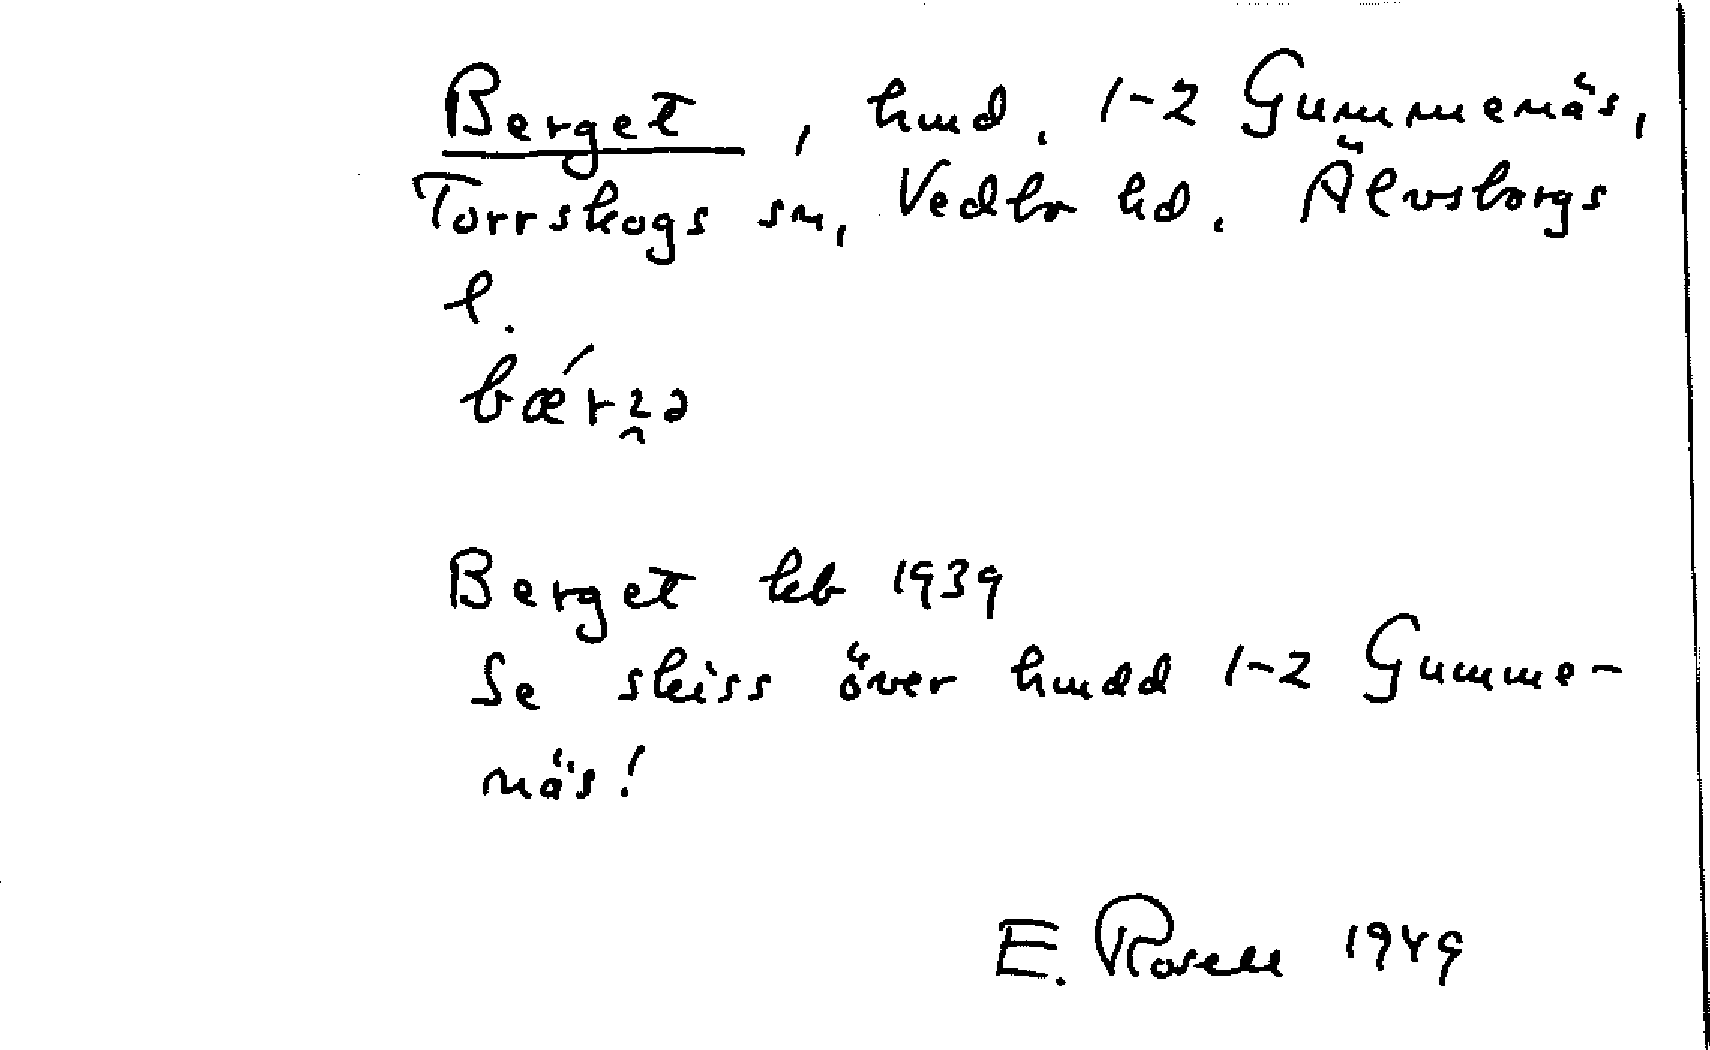 Berget, hmd. 1-2 Gummenäs,
Torrskogs sn, Vedbo hd. Älvsborgs
l.
Berget kb 1939
Se skiss över hmdd 1-2 Gumme-
näs!
E. Rosell 1949